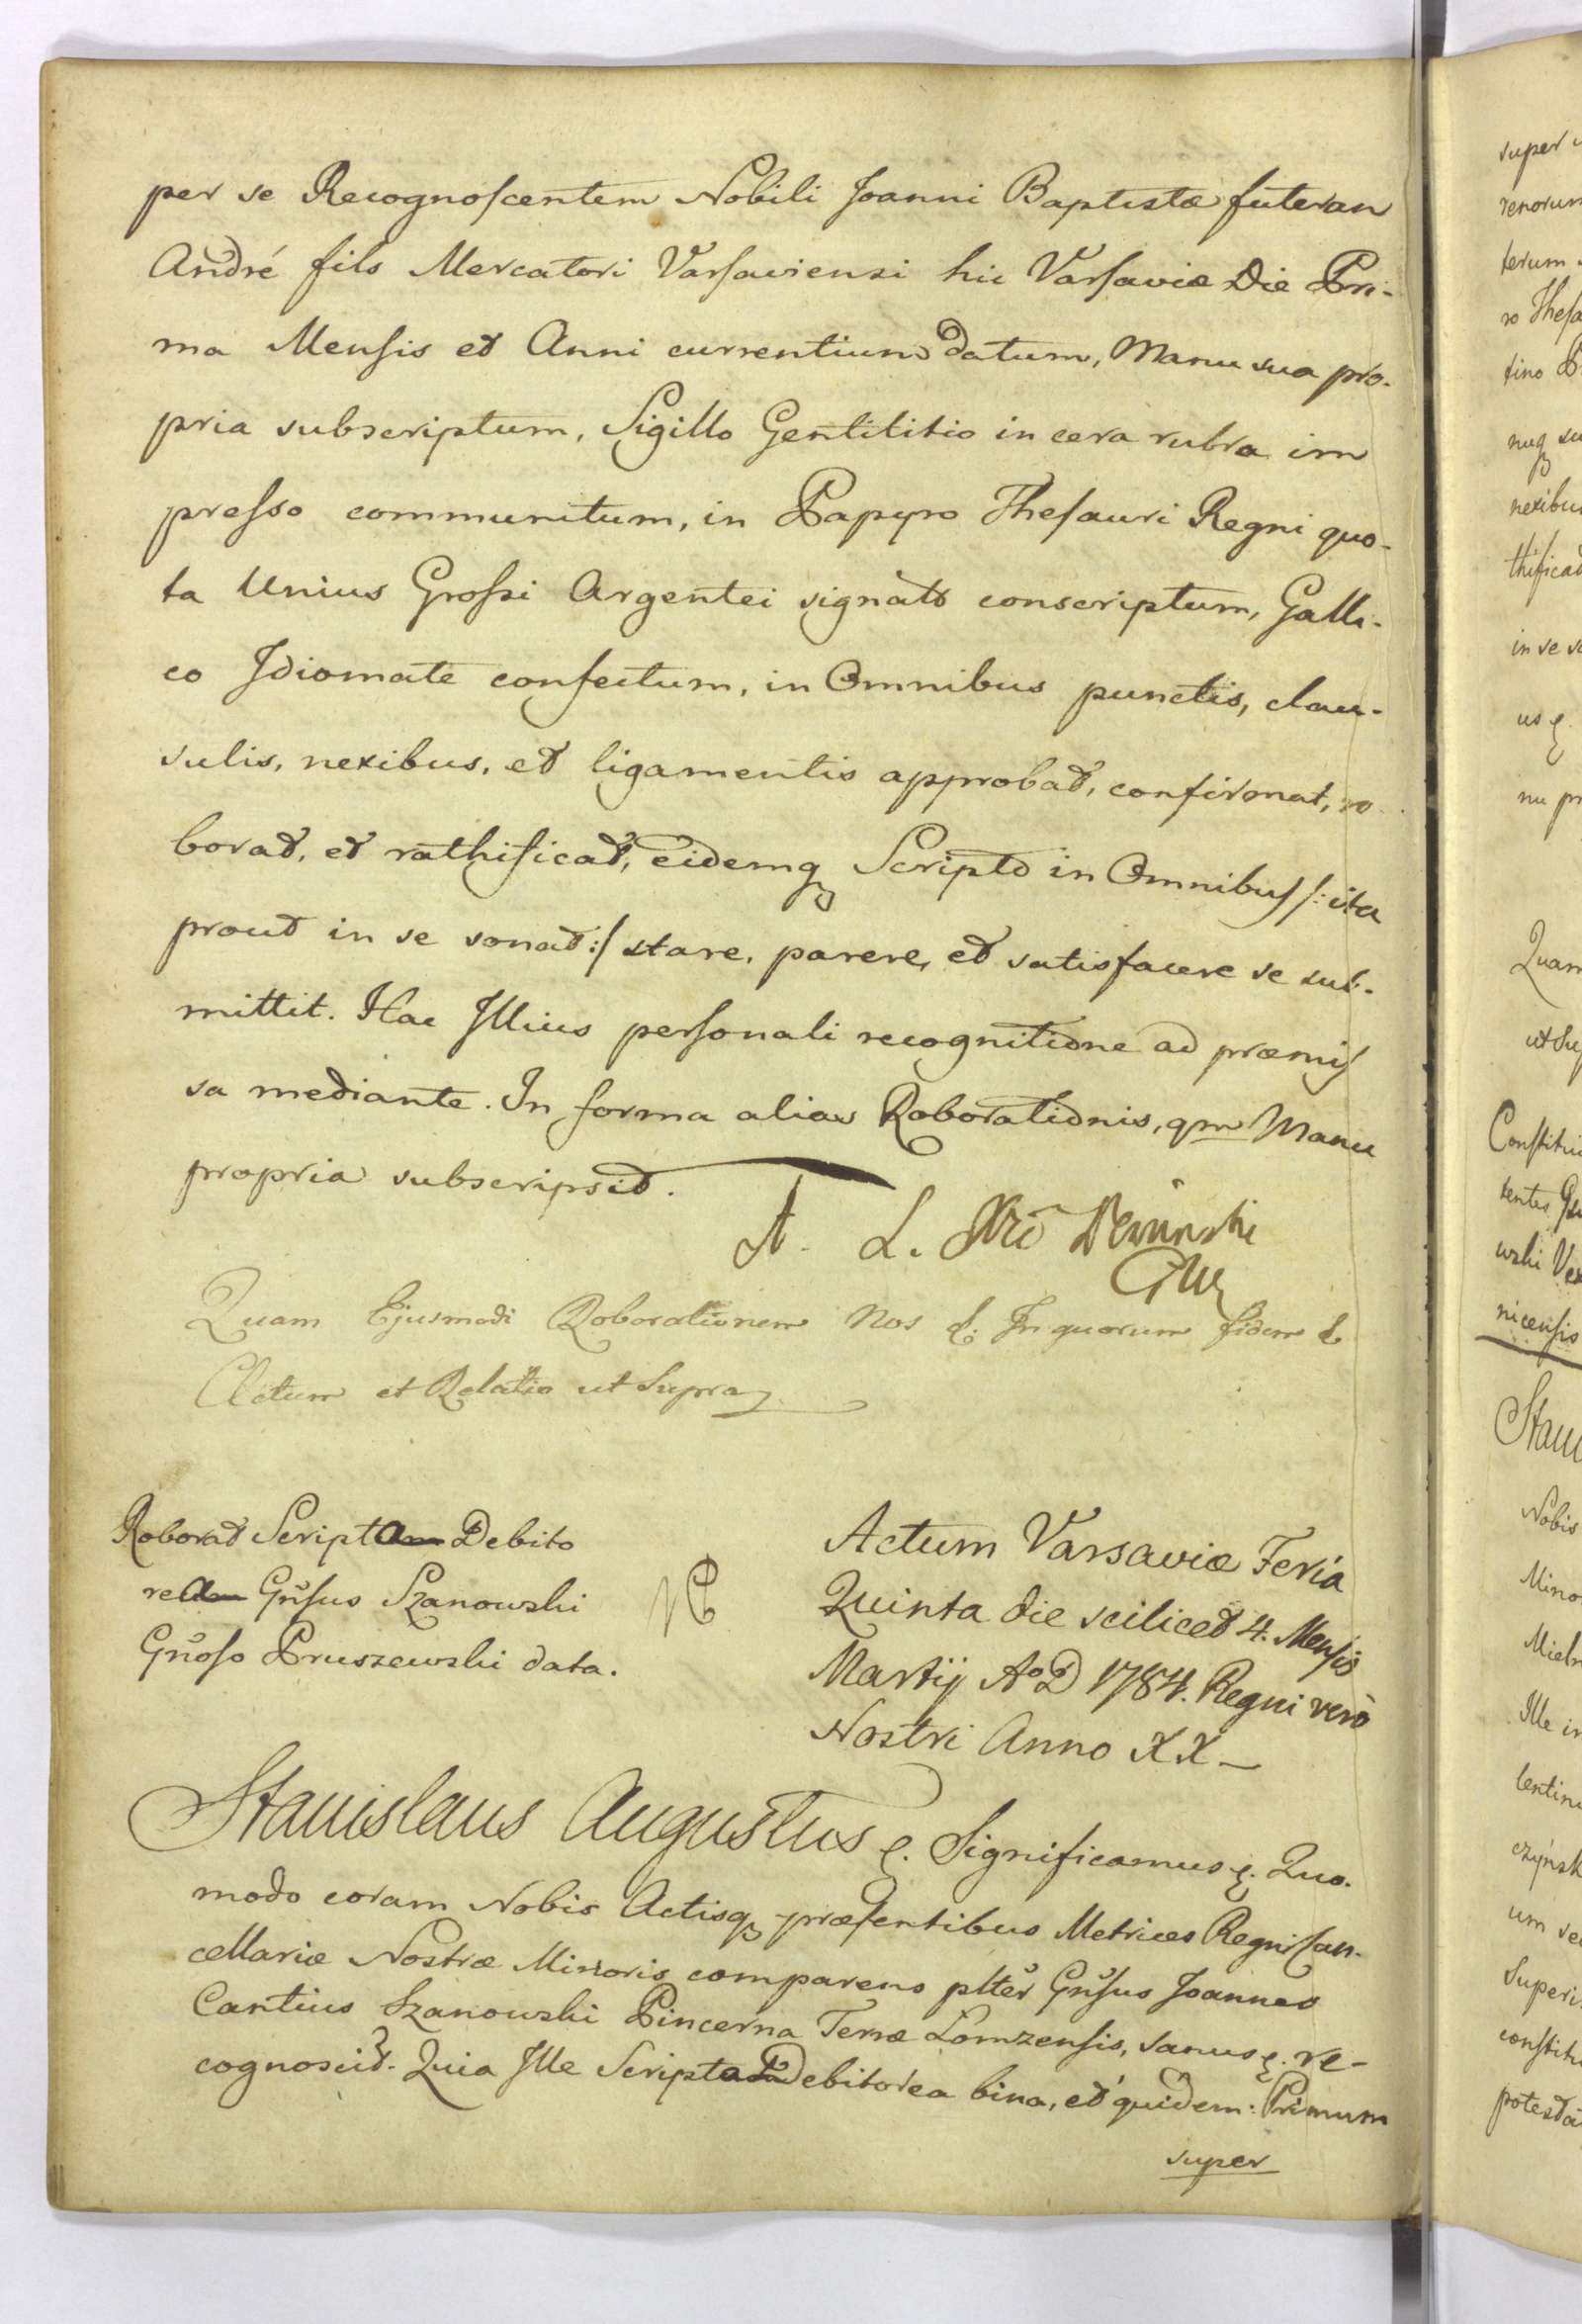 per se Recognoscentem Nobili Joanni Baptistæ futeran
André fils Mercatori Varsaviensi hic Varsaviæ Die Pri-
ma Mensis et Anni currentium datum, Manu sua pro-
pria subscriptum, Sigillo Gentilitio in cera rubra im
presso communitum, in Papyro Thesauri Regni quo-
ta Unius Grossi Argentei signato conscriptum, Galli-
co Idiomate confectum, in Omnibus punctis, clau-
sulis, nexibus, et ligamentis approbat, confirmat, ro
borat, et rathificat, eidemq Scripto in Omnibus /: ita
prout in se sonat :/ stare, parere, et satisfacere se sub-
mittit. Hac Illius personali recognitione ad præmis
sa mediante. In forma alias Roborationis, qm Manu
propria subscripsit.
A. L.
Quam Ejusmodi Roborationem Nos &. In quorum fidem &
Actum et Relatio ut Supra
Roborat Scripta Debito
rea Gnsus Szanowski
Gnoso Pruszewski data.
Actum Varsaviæ Feria
Quinta die scilicet 4. Mensis
Martij AoD 1784. Regni verò
Nostri Anno XX
Stanislaus Augustus &. Significamus &. Quo-
modo coram Nobis Actisq præsentibus Metrices Regni Can-
cellariæ Nostræ Minoris comparens pltêr Gnsus Joannes
Cantius Szanowski Pincerna Terræ Lomzensis, sanus &. re-
cognoscit. Quia Ille Scripta Debitorea bina, et quidem: Primum
super
super
renorum
terum
ro Thesa
tino
nuq su
nexibus
thificat
in se so
us &.
nu pr
Quam
ut Sup
Constitu
tentes
wski Vex
nicensis
Stani
Nobis
Mino
Mieln
Ille in
lentin
czynsk
um se
Superi
constitu
potesta